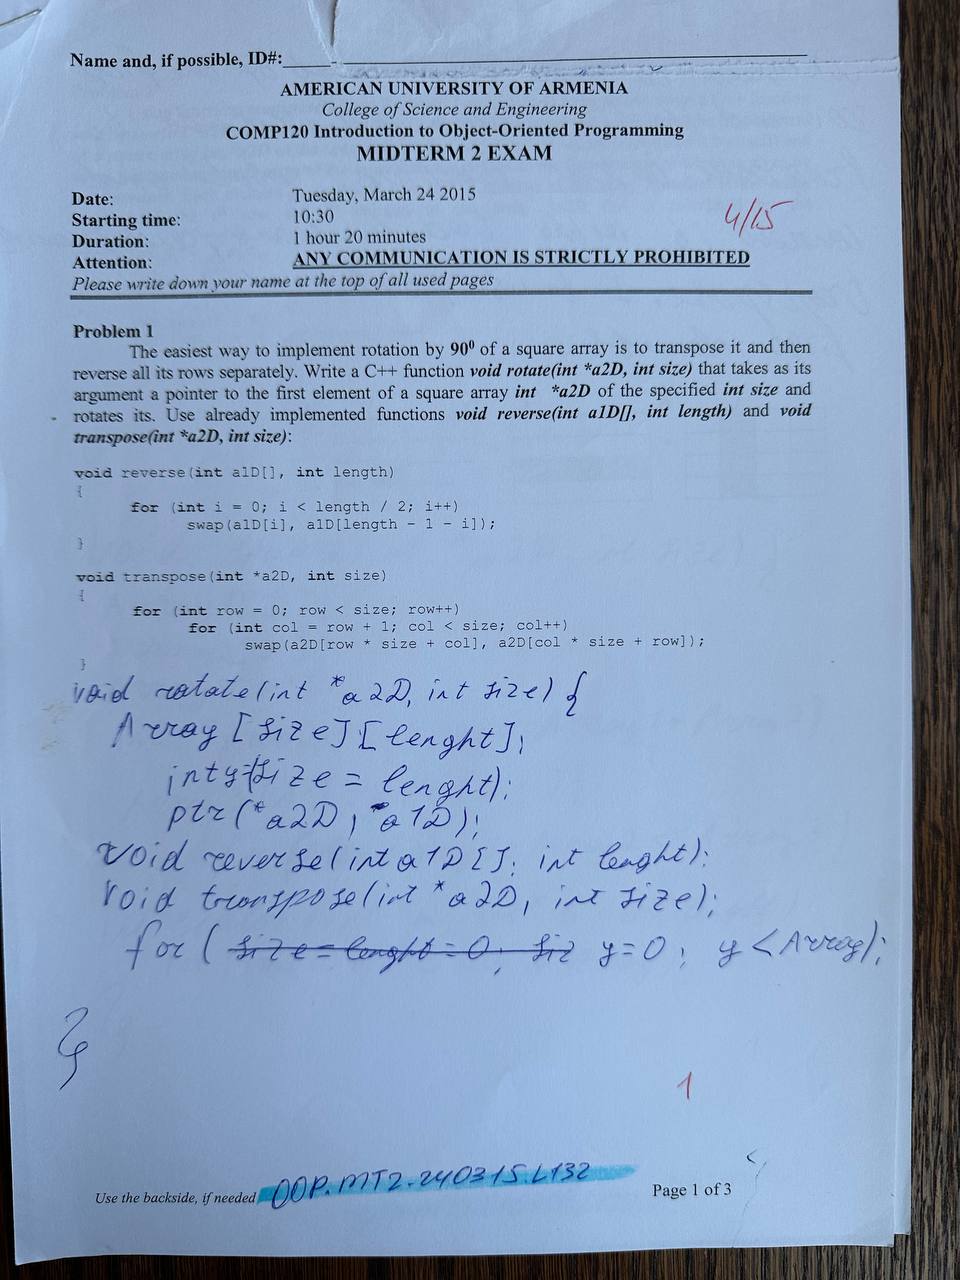 Name and, if possible, ID#:
AMERICAN UNIVERSITY OF ARMENIA
College of Science and Engineering
COMP120 Introduction to Object-Oriented Programming
MIDTERM 2 EXAM
Date: Tuesday, March 24 2015
Starting time: 10:30
4/15
Duration: 1 hour 20 minutes
Attention: ANY COMMUNICATION IS STRICTLY PROHIBITED
Please write down your name at the top of all used pages
Problem 1
The easiest way to implement rotation by 90⁰ of a square array is to transpose it and then
reverse all its rows separately. Write a C++ function void rotate(int *a2D, int size) that takes as its
argument a pointer to the first element of a square array int *a2D of the specified int size and
rotates its. Use already implemented functions void reverse(int a1D[], int length) and void
transpose(int *a2D, int size):
void reverse(int a1D[], int length)
{
for (int i = 0; i < length / 2; i++)
swap(a1D[i], a1D[length - 1 - i]);
}
void transpose(int *a2D, int size)
{
for (int row = 0; row < size; row++)
for (int col = row + 1; col < size; col++)
swap(a2D[row * size + col], a2D[col * size + row]);
}
void rotate(int *a2D, int size) {
Array [size][lenght];
int y=(size = lenght);
ptr(*a2D, *a1D);
void reverse(int a1D[]; int lenght);
void transpose(int *a2D, int size);
for ( size = lenght = 0; siz y=0; y < Array);
}
1
Use the backside, if needed OOP.MT2.240315.L132
Page 1 of 3